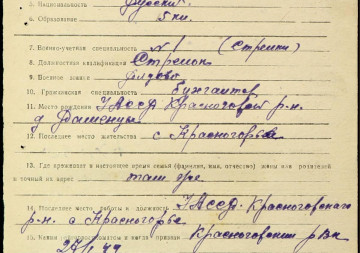 5. Национальность русский
6. Образование 5 кл.
7. Военно-учетная специальность №1 (Стрелки)
8. Должностная квалификация Стрелок
9. Военное звание рядовой
10. Гражданская специальность бухгалтер
11. Место рождения УАССР, Красногорский р-н.
д.
12. Последнее место жительства с Красногорье
13. Где проживает в настоящее время семья (фамилия, имя, отчество) жены или родителей
и точный их адрес там же
14. Последнее место работы и должность УАССР. Красногорского
р-н. с Красногорье
15. Каким военкоматом и когда призван Красногорским рвк